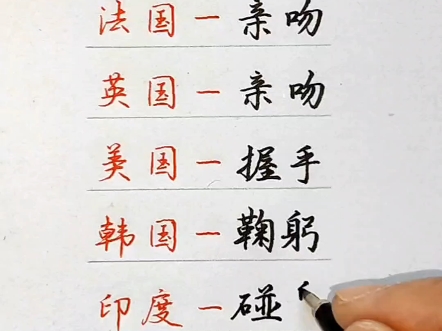 法国一亲吻
英国一亲吻
美国一握手
韩国一鞠躬
印度一碰